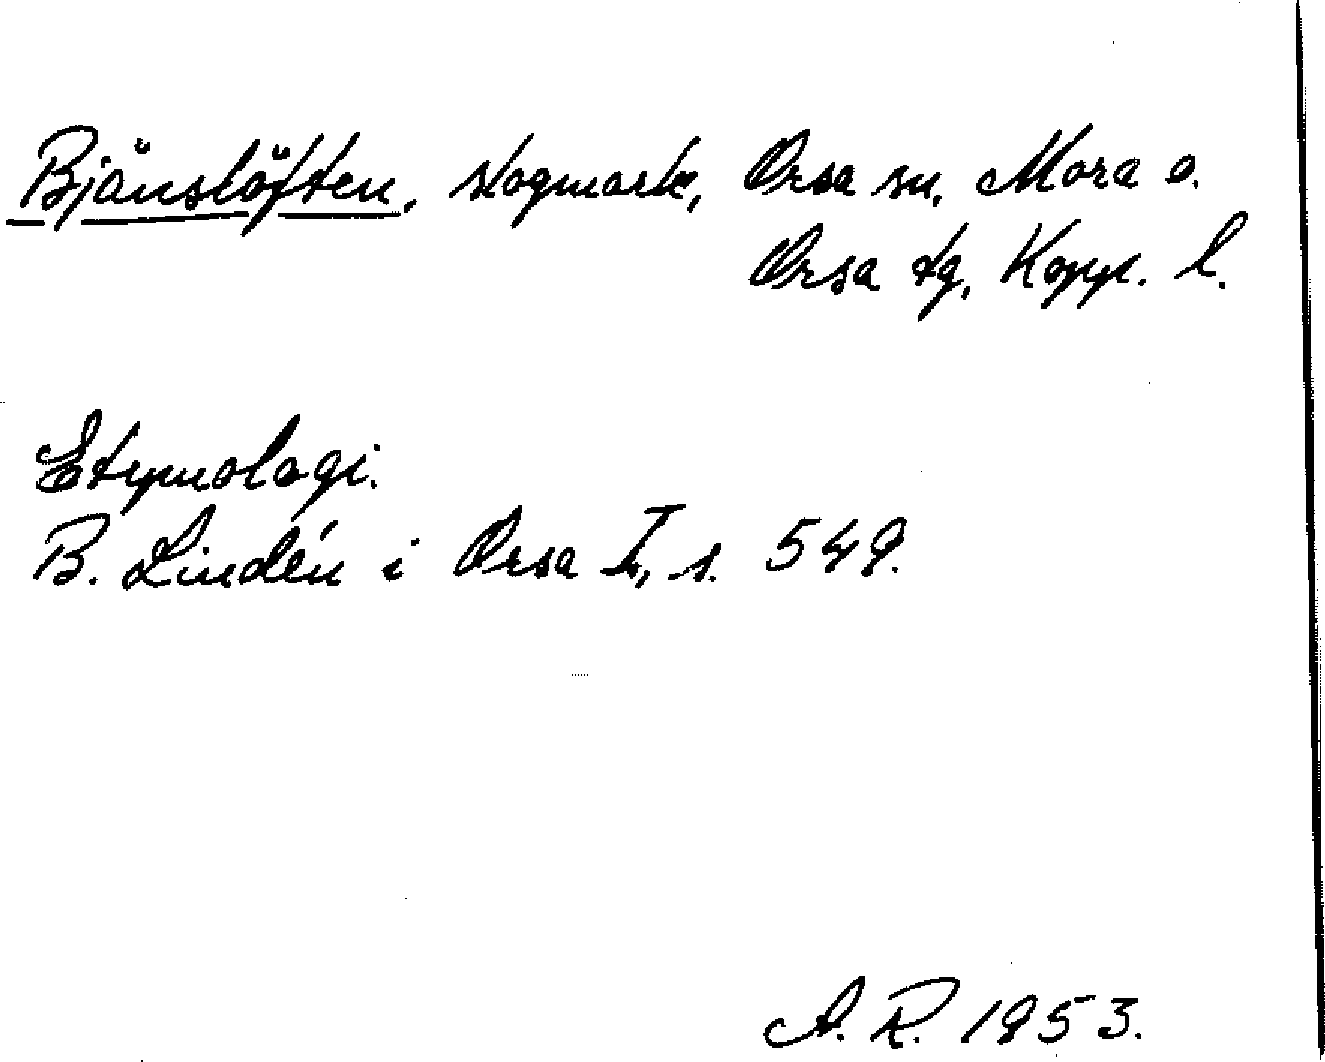 Bjänslöften, skogmark, Orsa sn, Mora o.
Orsa tg, Kopp. l.
Etymologi.
B. Lindén i Orsa I, s. 549.
A. R. 1953.